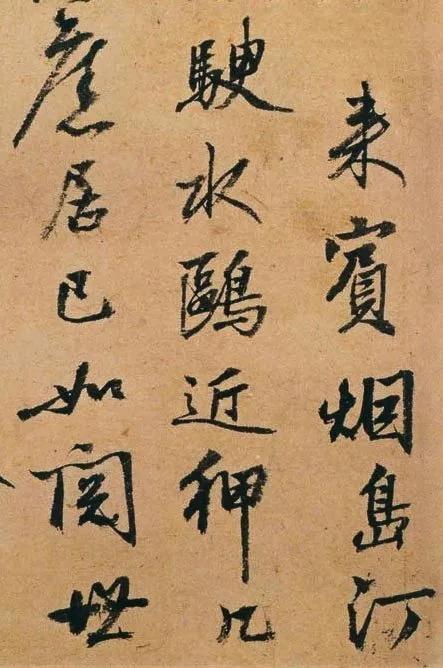 来賓烟島汀
駛水鷗近狎几
居已如閱世